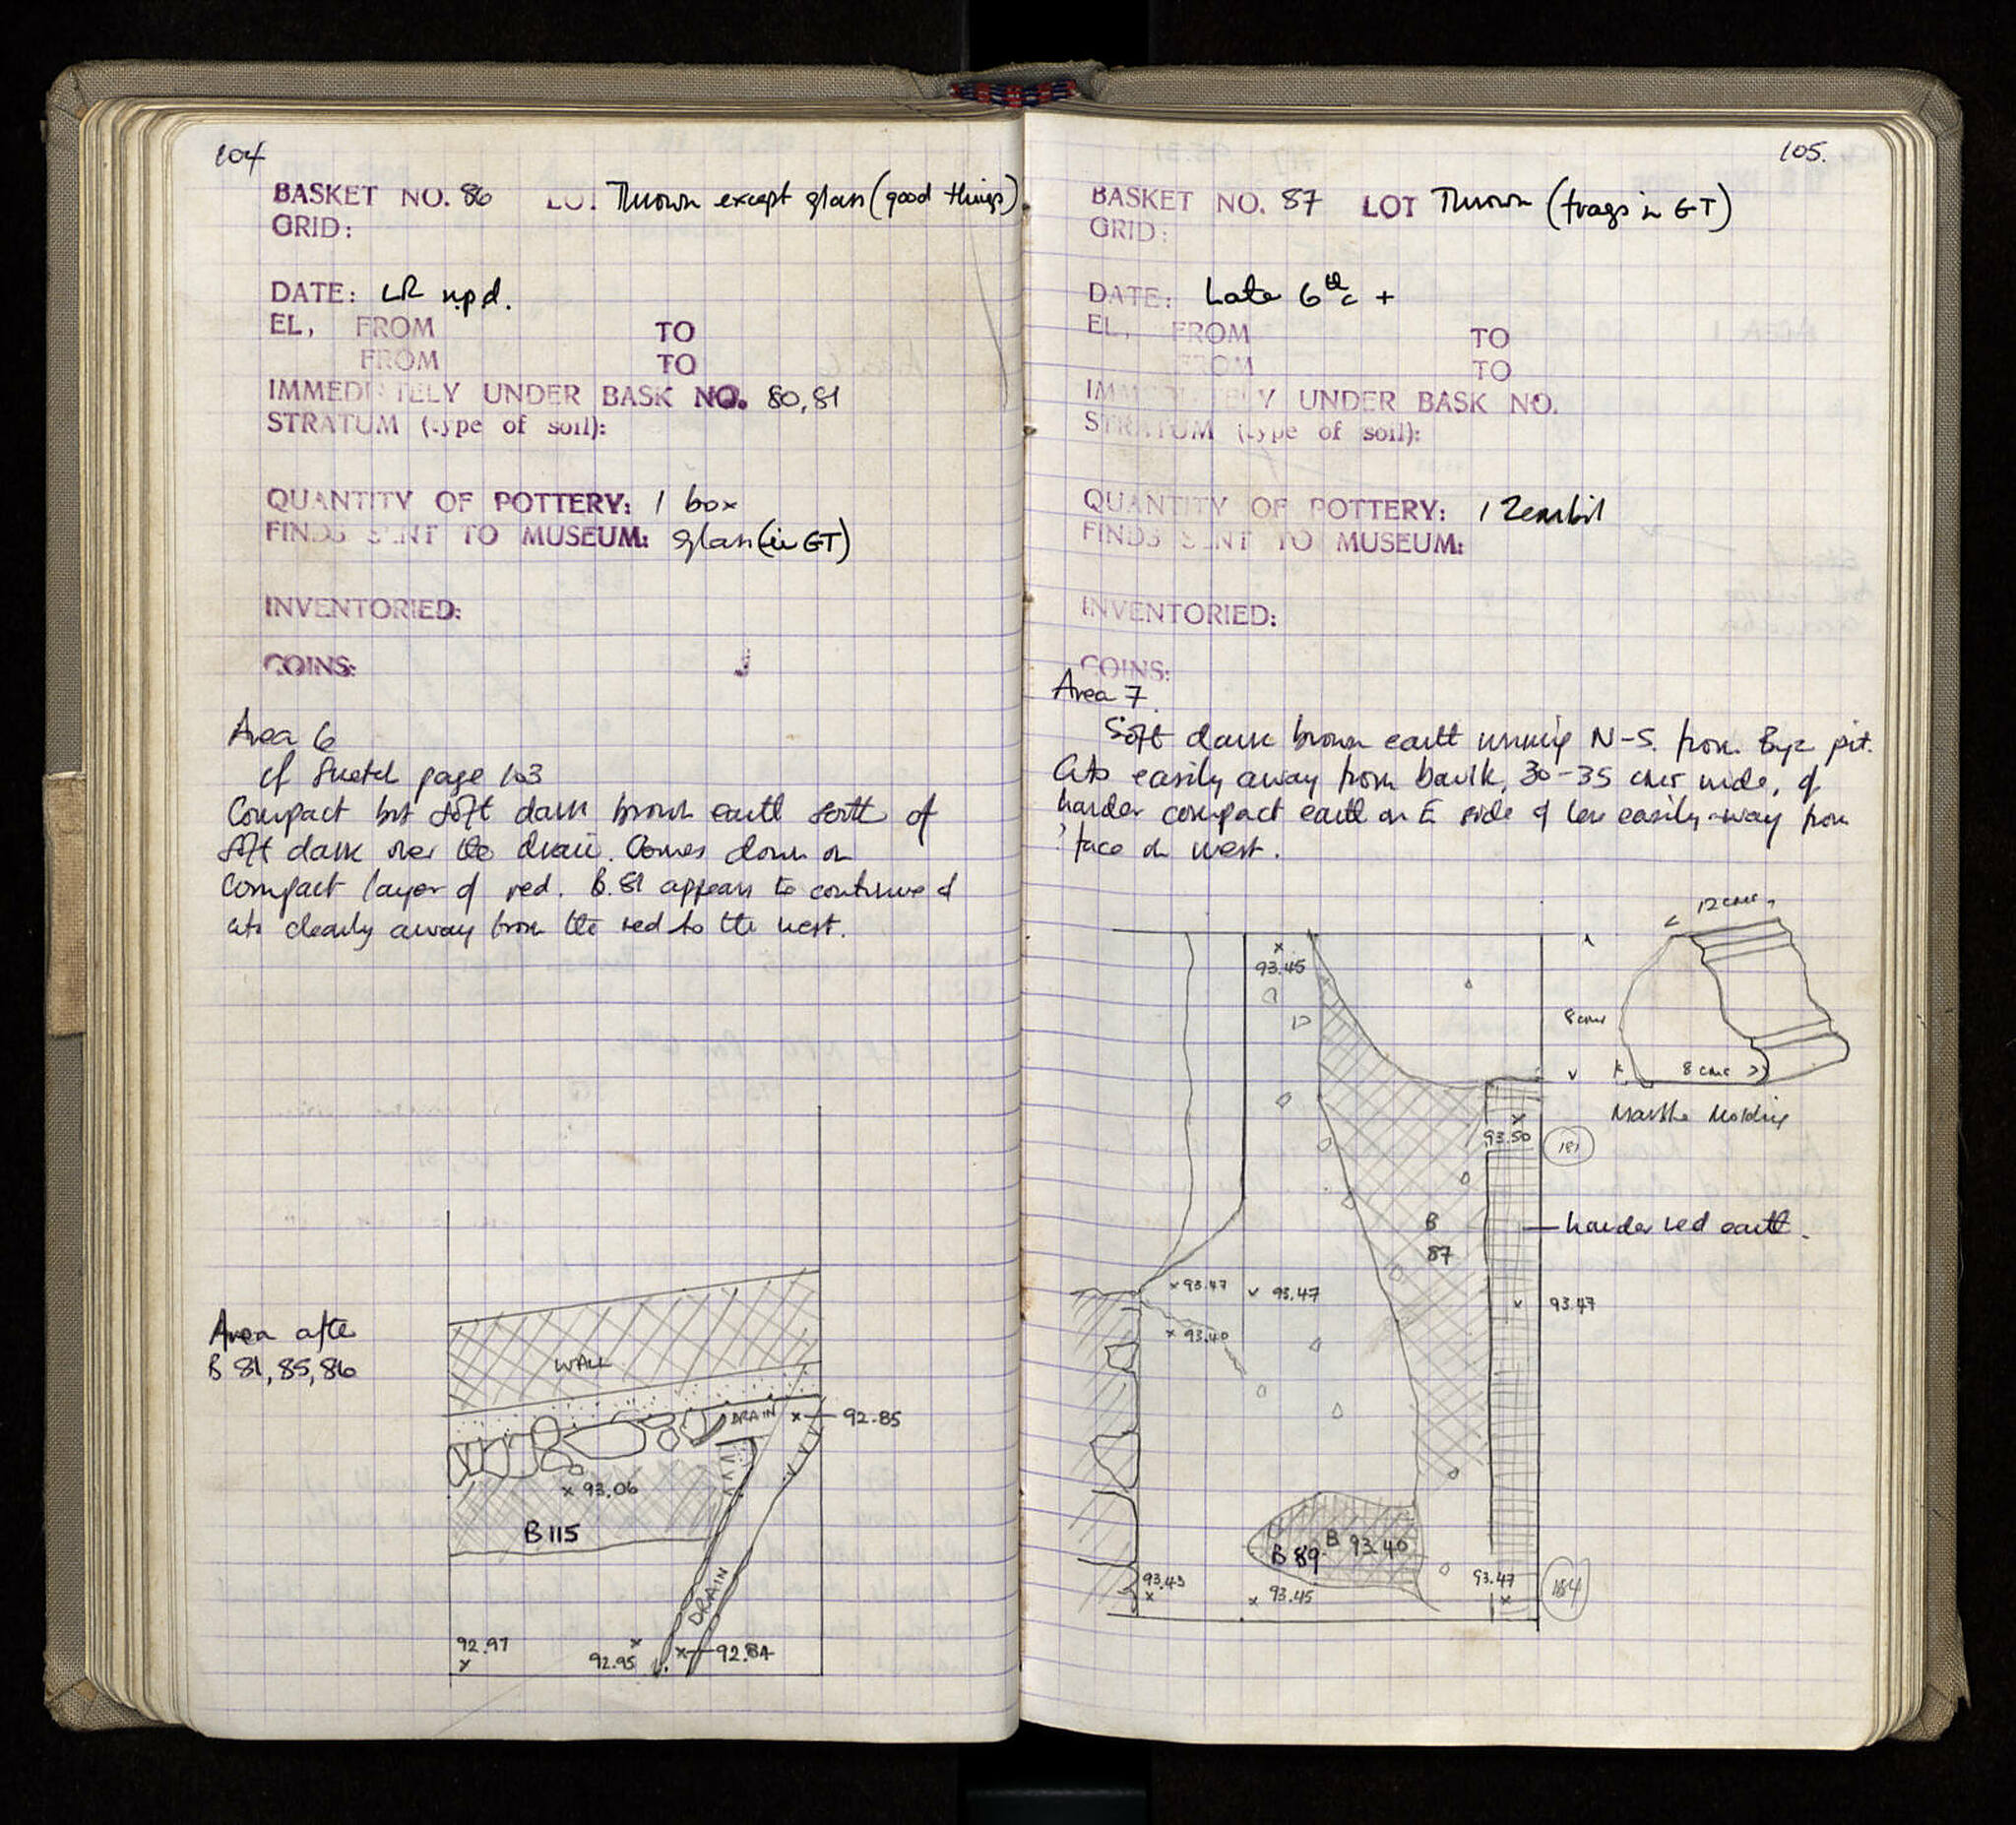 104
BASKET NO. 86 LOT Thrown except glass (good things)
GRID:
DATE: LR n.p.d.
EL, FROM TO
FROM TO
IMMEDIATELY UNDER BASK NO. 80, 81
STRATUM (type of soil):
QUANTITY OF POTTERY: 1 box
FINDS SENT TO MUSEUM: glass (in GT)
INVENTORIED:
COINS:
Area 6
cf sketch page 103
Compact but soft dark brown earth south of
soft dark over the drain. Comes down on
compact layer of red. B.81 appears to continue &
cuts clearly away from the red to the west.
Area after
B 81, 85, 86
WALL
DRAIN
92.85
93.06
B115
DRAIN
92.97
92.95
92.84
105.
BASKET NO. 87 LOT Thrown (frags in GT)
GRID:
DATE: Late 6th c +
EL, FROM TO
FROM TO
IMMEDIATELY UNDER BASK NO.
STRATUM (type of soil):
QUANTITY OF POTTERY: 1 Zembil
FINDS SENT TO MUSEUM:
INVENTORIED:
COINS:
Area 7.
Soft dark brown earth running N-S. from Byz pit.
Cuts easily away from baulk, 30-35 cms wide, of
harder compact earth on E side & less easily away from
? face on west.
12 cms
93.45
8 cms
8 cms
Marble Molding
93.50
181
B
87
harder red earth.
93.47
93.47
93.47
93.40
B 89
B 93.40
93.43
93.45
93.47
184